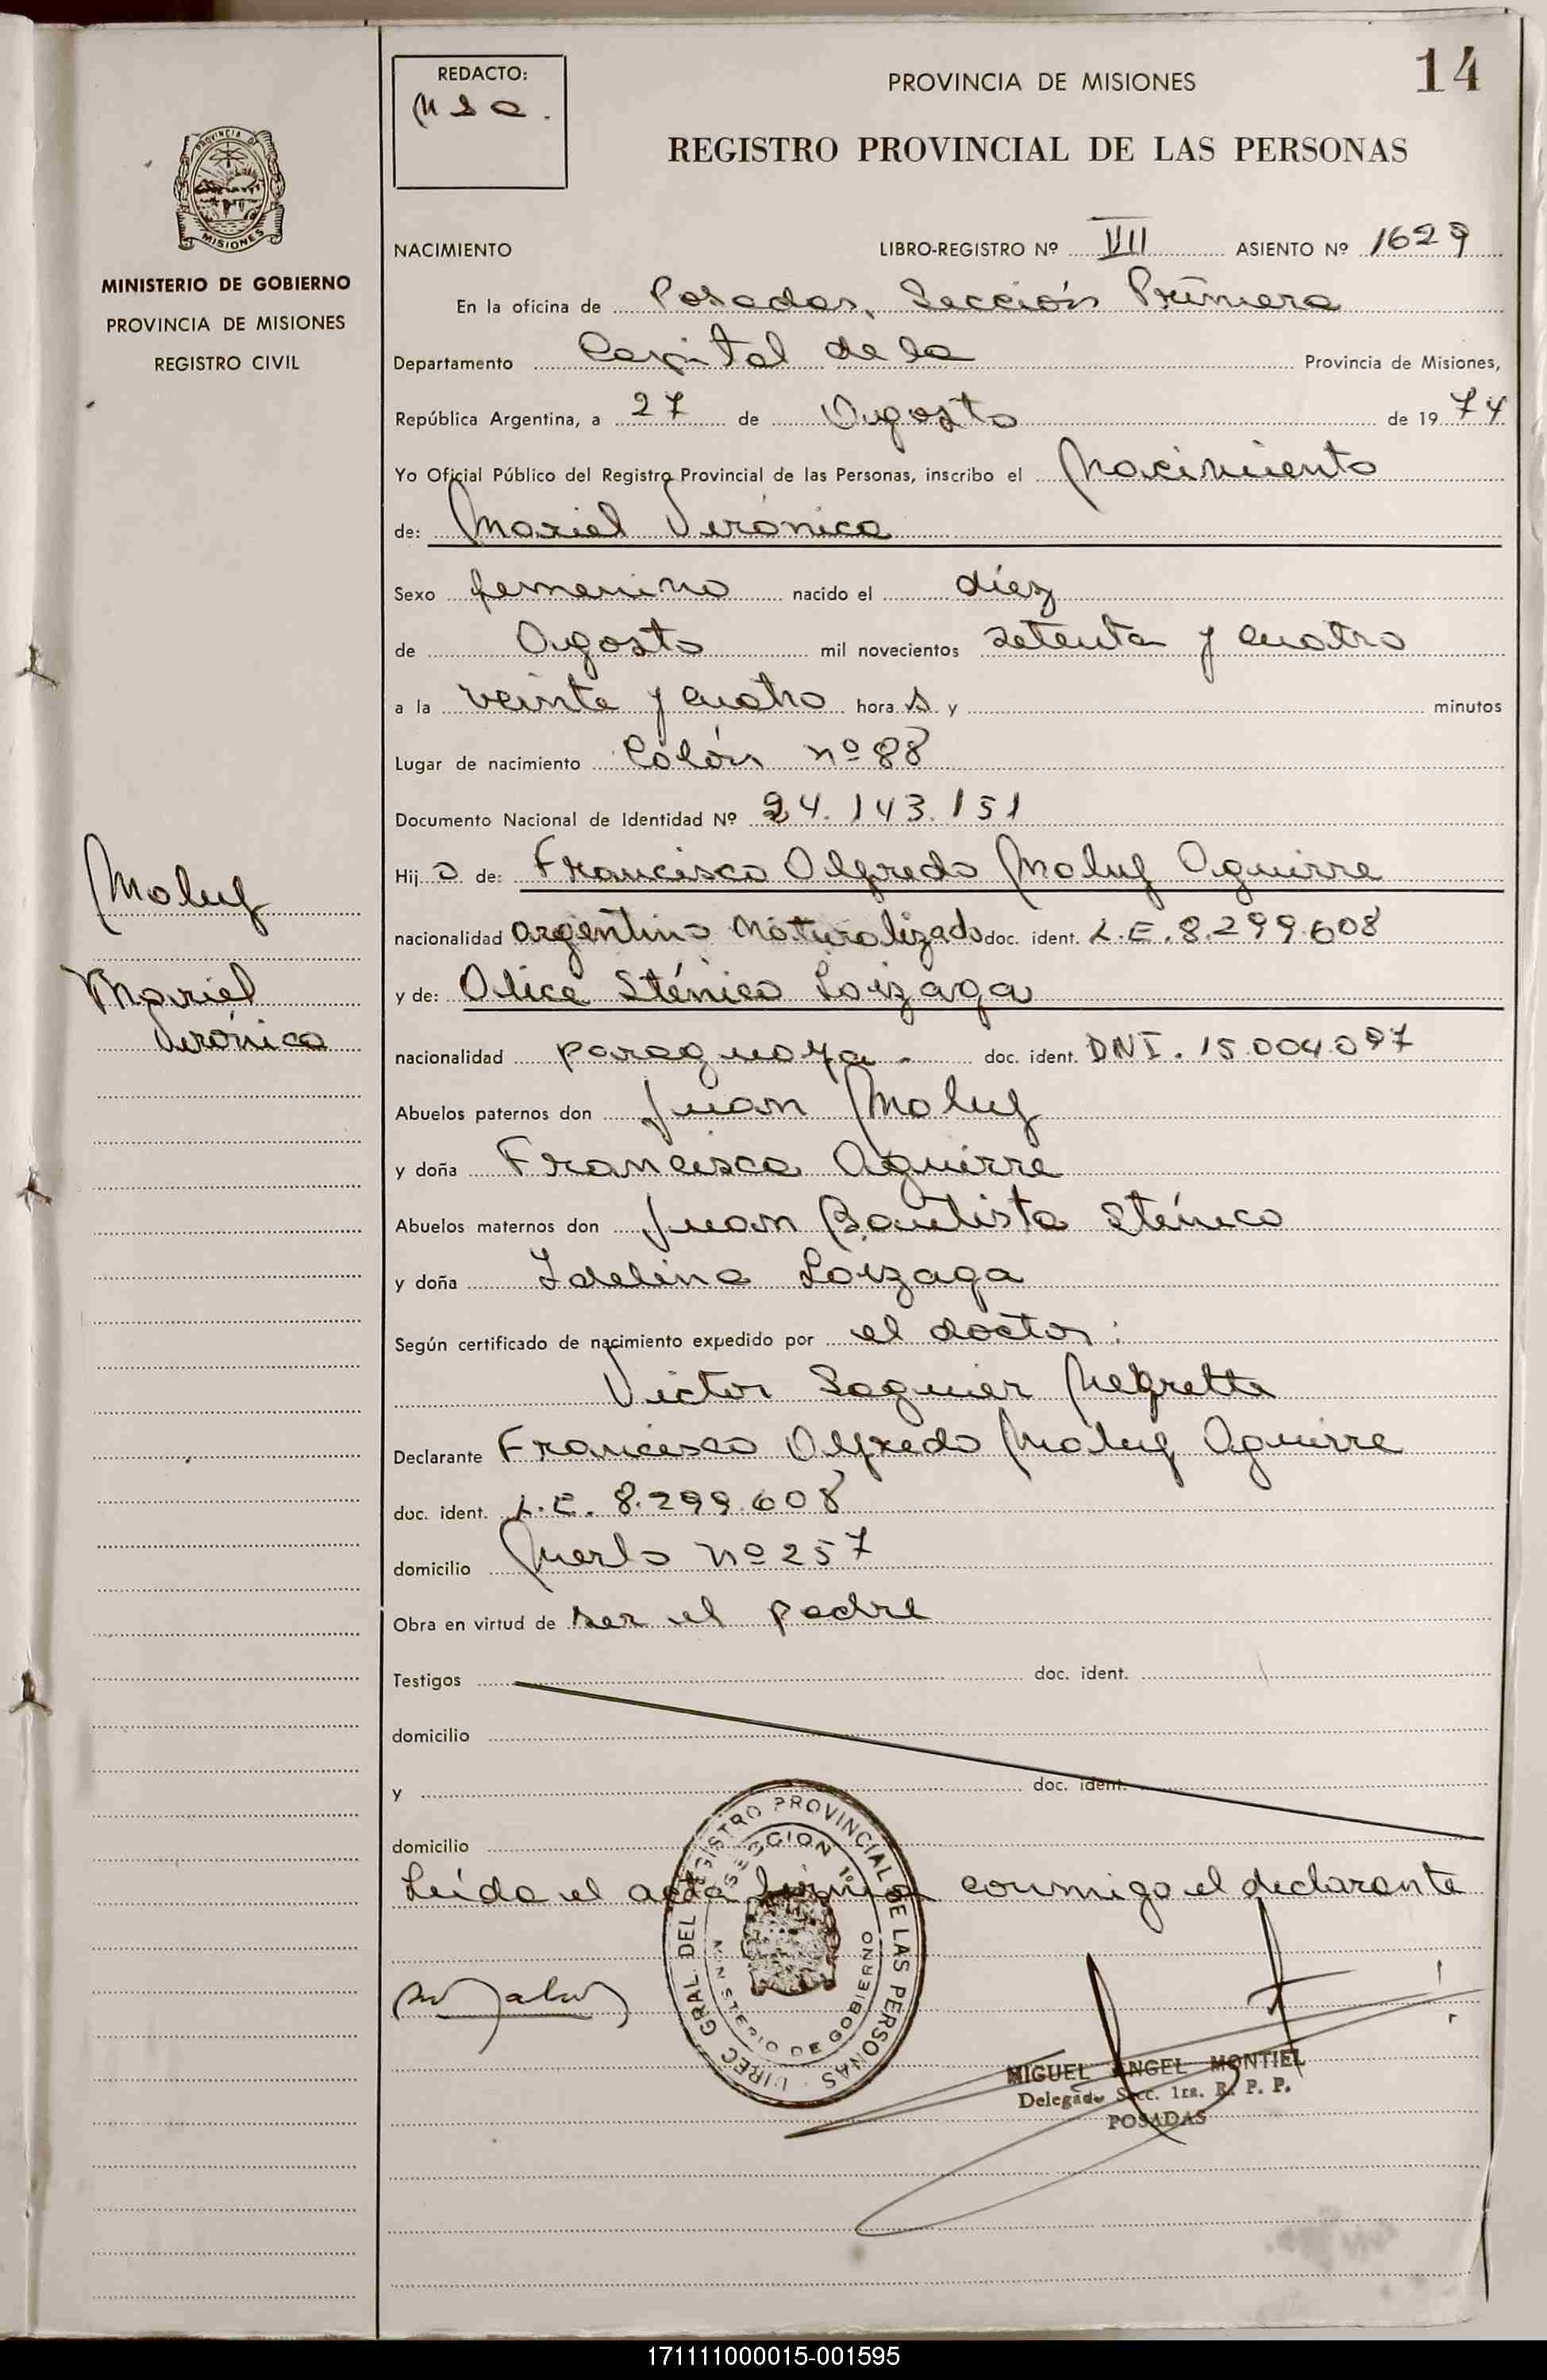 14
REDACTO:
PROVINCIA DE MISIONES
REGISTRO PROVINCIAL DE LAS PERSONAS
PROVINCIA DE
MISIONES
MINISTERIO DE GOBIERNO
PROVINCIA DE MISIONES
REGISTRO CIVIL
NACIMIENTO LIBRO-REGISTRO Nº VII ASIENTO Nº 1629
En la oficina de Posadas, Sección Primera
Departamento Capital de la Provincia de Misiones,
República Argentina, a 27 de Agosto de 1974
Yo Oficial Público del Registro Provincial de las Personas, inscribo el Nacimiento
de: Mariel Verónica
Sexo femenino nacido el diez
de Agosto mil novecientos setenta y cuatro
a la veinte y cuatro hora s y minutos
Lugar de nacimiento Colón nº 88
Documento Nacional de Identidad Nº 24.143.151
Hij a de: Francisco Alfredo Maluf Aguirre
nacionalidad argentino naturalizado doc. ident. L.E. 8.299.608
y de: Alice Sténico Loizaga
nacionalidad paraguaya. doc. ident. DNI. 15.004.097
Abuelos paternos don Juan Maluf
y doña Francisca Aguirre
Abuelos maternos don Juan Bautista Sténico
y doña Idelina Loizaga
Según certificado de nacimiento expedido por el doctor:
Victor Saguier Negrette
Declarante Francisco Alfredo Maluf Aguirre
doc. ident. L.E. 8.299.608
domicilio Merlo nº 257
Obra en virtud de ser el padre
Testigos doc. ident.
domicilio
y doc. ident.
domicilio
Leída el acta firma conmigo el declarante
Maluf
Mariel
Verónica
DIREC. GRAL. DEL REGISTRO PROVINCIAL DE LAS PERSONAS
SECCION 1º
MINISTERIO DE GOBIERNO
MIGUEL ANGEL MONTIEL
Delegado Secc. 1ra. R. P. P.
POSADAS
171111000015-001595